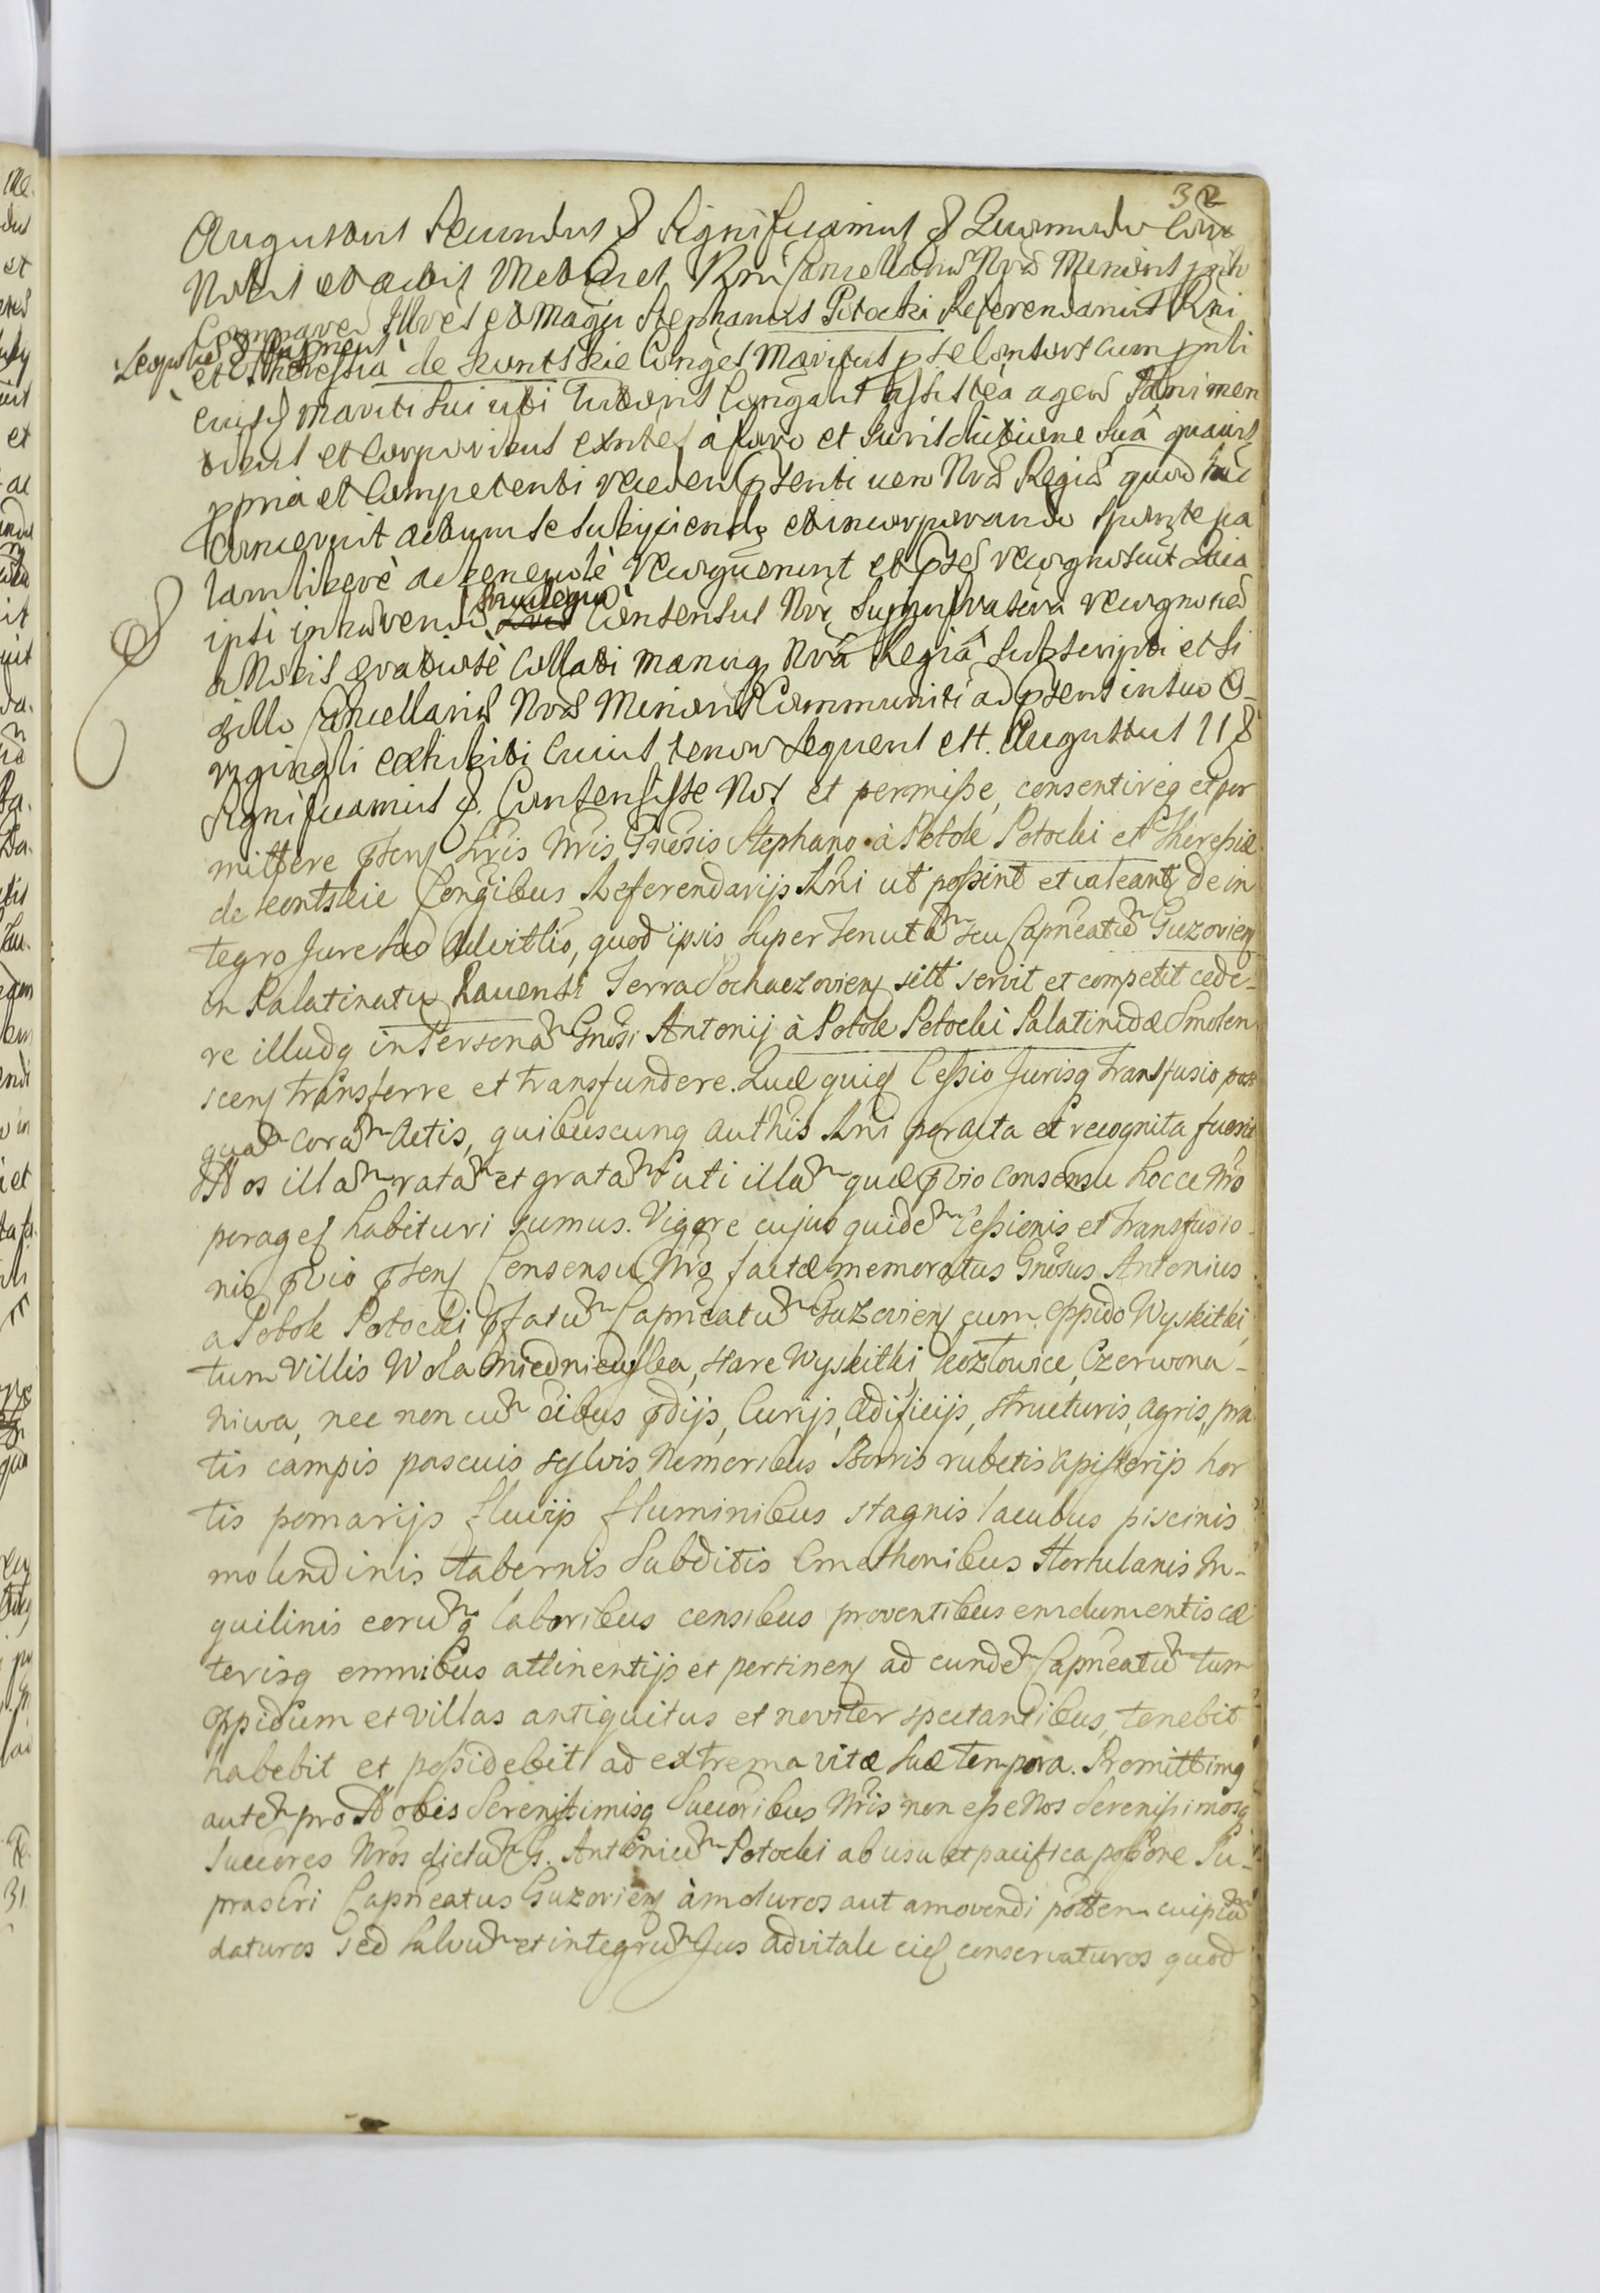 32
Augustus Secundus & Significamus & Quomodo Cora
Nobis et actis Metrices Rni Cancellariae Nrae Minoris psnlr
Comparen Illres et Magci Stephanus Potocki Referendarius Rni
Leopolien &
et Theressia de Kontskie Conges Maritus p se Consors cum psnti
eiusq mariti sui uti tutoris Congalis assistea agen Sani men
tibus et corporibus exntes à foro et Jurisdictione Suâ quavis
ppria et Competenti receden psenti vero Nrae Regiae quoad hunc
concernit actum se subijciendo et incorporando sponte pa
lam libere ac benevolè recognerunt et pses recognoscut Quia
ipsi inhaerendo Privilegio Consensus Nri, Supra recognitioe
a Nobis gratiosè Collati manuq Nra Regiâ Subscripti et Si
gillo Cancellariae Nrae Minoris Communiti ad psens in suo O-
rginali exhibiti Cuius tenor Sequens est. Augustus II &
Significamus &. Consensisse Nos et permisse, consentireq et per
mittere psens Lris Nris Gnosis Stephano à Potok Potocki et Theressiae
de Kontskie Congibus Referendarijs Rni ut possint et valeantq de in
tegro Jure Suo Advitlio, quod ipsis super Tenutam seu Capneatum Guzovien
in Palatinatu Ravensi Terra Sochaczovien sitt servit et competit cede-
re illudq in Personam Gnosi Antonij à Potok Potocki Palatinidae Smolen
scen transferre et transfundere. Quae quid Cessio Jurisq transfusio post
quam coram Actis, quibuscunq authis Rni peracta et recognita fuerit
Nos illam ratam et gratam uti illam quae pvio consensu hocce Nro
peraget habituri sumus. Vigore cujus quidem Cessionis et transfusio-
nis pvio psens Consensu Nro factae memoratus Gnosus Antonius
a Potok Potocki pfatum Capneatum Guzovien cum oppido Wyskitki,
tum Villis Wola Miedniewska, Stare Wyskitki, Kozłowice, Czerwona-
niwa, nec non cum oibus pdijs, Curijs, Aedificijs, structuris, agris, pra
tis campis pascuis sylvis Nemoribus Borris rubetis apisterijs hor
tis pomarijs fluvijs fluminibus stagnis lacubus piscinis
molendinis tabernis Subditis Cmethonibus Hortulanis In-
quilinis eorumq laboribus censibus proventibus emolumentis cae
terisq omnibus attinentijs et pertinen ad eundem Capneatum tum
Oppidum et villas antiquitus et noviter spectantibus, tenebit
habebit et possidebit ad extrema vitae suae tempora. Promittimq
autem pro Nobis Serenissimisq Succoribus Nris non esse Nos Serenissimosq
Succores Nros dictum G. Antonium Potocki ab usu et pacifica possone Su-
prascri Capneatus Guzovien àmoturos aut amovendi pottem cuipiam
daturos sed salvum et integrum Jus advitale eid conservaturos quod